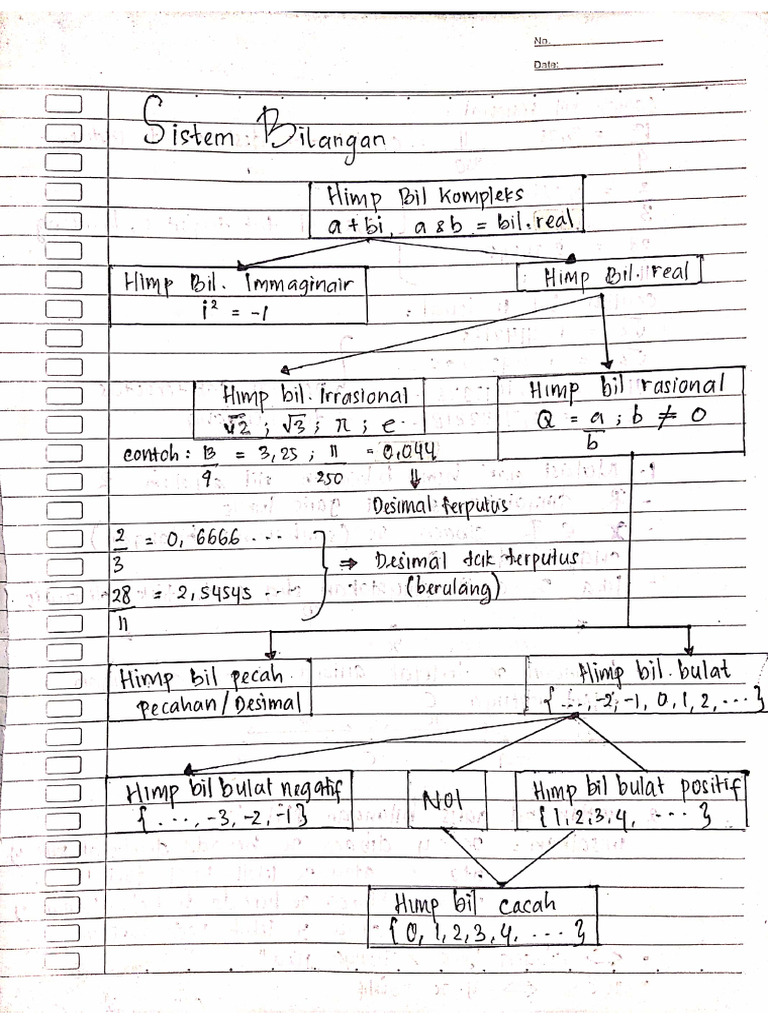 No.
Date:
Sistem Bilangan
Himp Bil Kompleks
a + bi, a & b = bil. real
Himp Bil. Immaginair
i² = -1
Himp Bil. real
Himp bil. irrasional
√2 ; √3 ; π ; e
Himp bil rasional
Q = a/b ; b ≠ 0
contoh : 13/9 = 3,25 ; 11/250 = 0,044
⇓
Desimal terputus
2/3 = 0,6666 ...
28/11 = 2,54545 ...
⇒ Desimal tak terputus
(berulang)
Himp bil pecah
pecahan / Desimal
Himp bil. bulat
{ ..., -2, -1, 0, 1, 2, ... }
Himp bil bulat negatif
{ ..., -3, -2, -1 }
NOl
Himp bil bulat positif
{ 1, 2, 3, 4, ... }
Himp bil cacah
{ 0, 1, 2, 3, 4, ... }